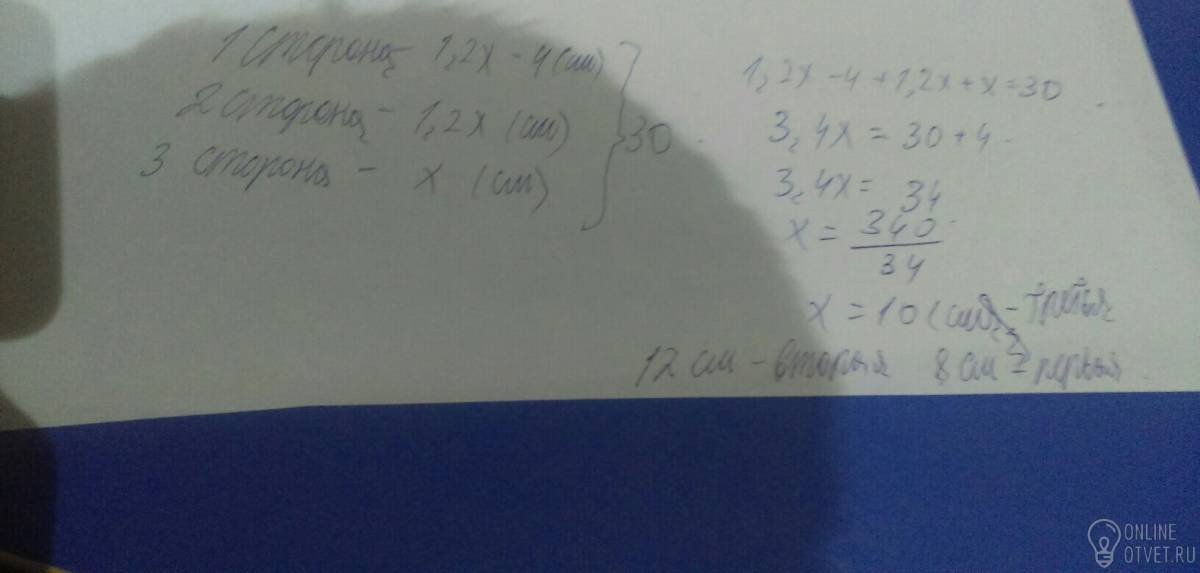 1 сторона - 1,2x - 4 (см)
2 сторона - 1,2x (см)
3 сторона - x (см)
30
1,2x - 4 + 1,2x + x = 30
3,4x = 30 + 4
3,4x = 34
x = 340
34
x = 10 (см) - третья
12 см - вторая 8 см - первая
ONLINE
OTVET.RU